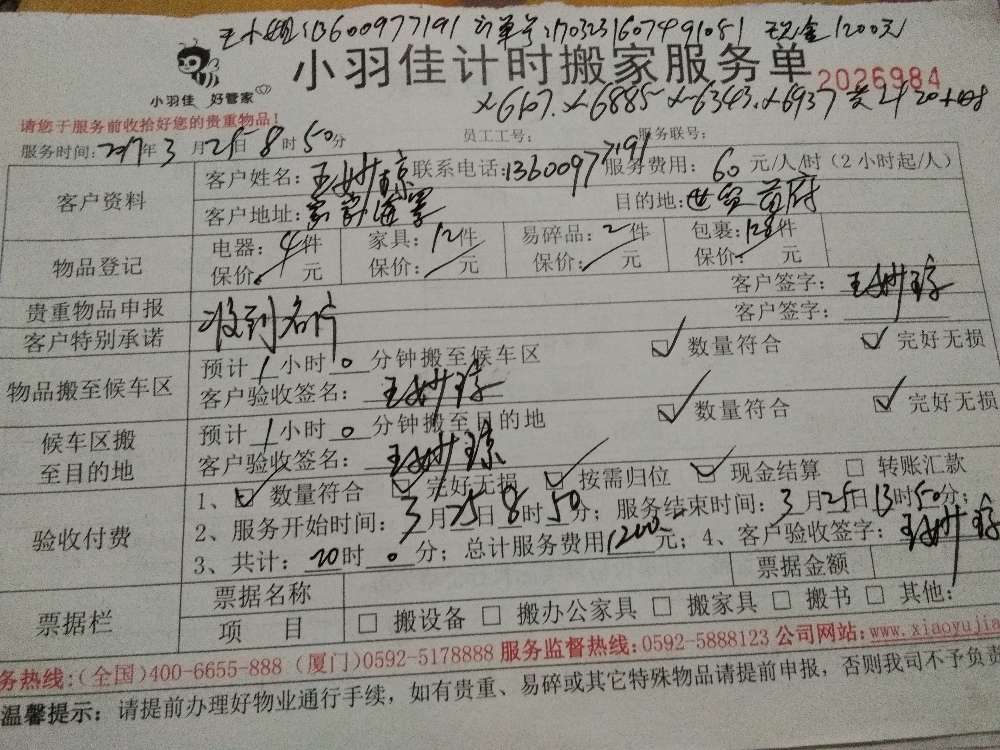 王小姐:13600977191 订单号:1703231607491081 现金1200元
小羽佳 好管家
小羽佳计时搬家服务单 2026984
x6167.x6885 x6343.x6937 黄24 20小时
请您于服务前收拾好您的贵重物品!
服务时间:2017年3月25日8时50分 员工工号: 服务联号:
客户资料 客户姓名:王妙琼 联系电话:13600977191 服务费用:60元/人/时(2小时起/人)
客户地址: 目的地:世贸首府
物品登记 电器:4件 家具:12件 易碎品:2件 包裹:128件
保价: 元 保价: 元 保价: 元 保价: 元
贵重物品申报 客户签字:王妙琼
客户特别承诺 收到名片 客户签字:
物品搬至候车区 预计1小时0分钟搬至候车区 ☑ 数量符合 ☑ 完好无损
客户验收签名:王妙琼
候车区搬至目的地 预计1小时0分钟搬至目的地 ☑ 数量符合 ☑ 完好无损
客户验收签名:王妙琼
验收付费 1、☑ 数量符合 ☑ 完好无损 ☑ 按需归位 ☑ 现金结算 □ 转账汇款
2、服务开始时间:3月25日8时50分;服务结束时间:3月25日13时50分;
3、共计:20时0分;总计服务费用1200元;4、客户验收签字:王妙琼
票据栏 票据名称 票据金额
项 目 □ 搬设备 □ 搬办公家具 □ 搬家具 □ 搬书 □ 其他:
务热线:(全国)400-6655-888 (厦门)0592-5178888 服务监督热线:0592-5888123 公司网站:www.xiaoyujia
温馨提示:请提前办理好物业通行手续,如有贵重、易碎或其它特殊物品请提前申报,否则我司不予负责